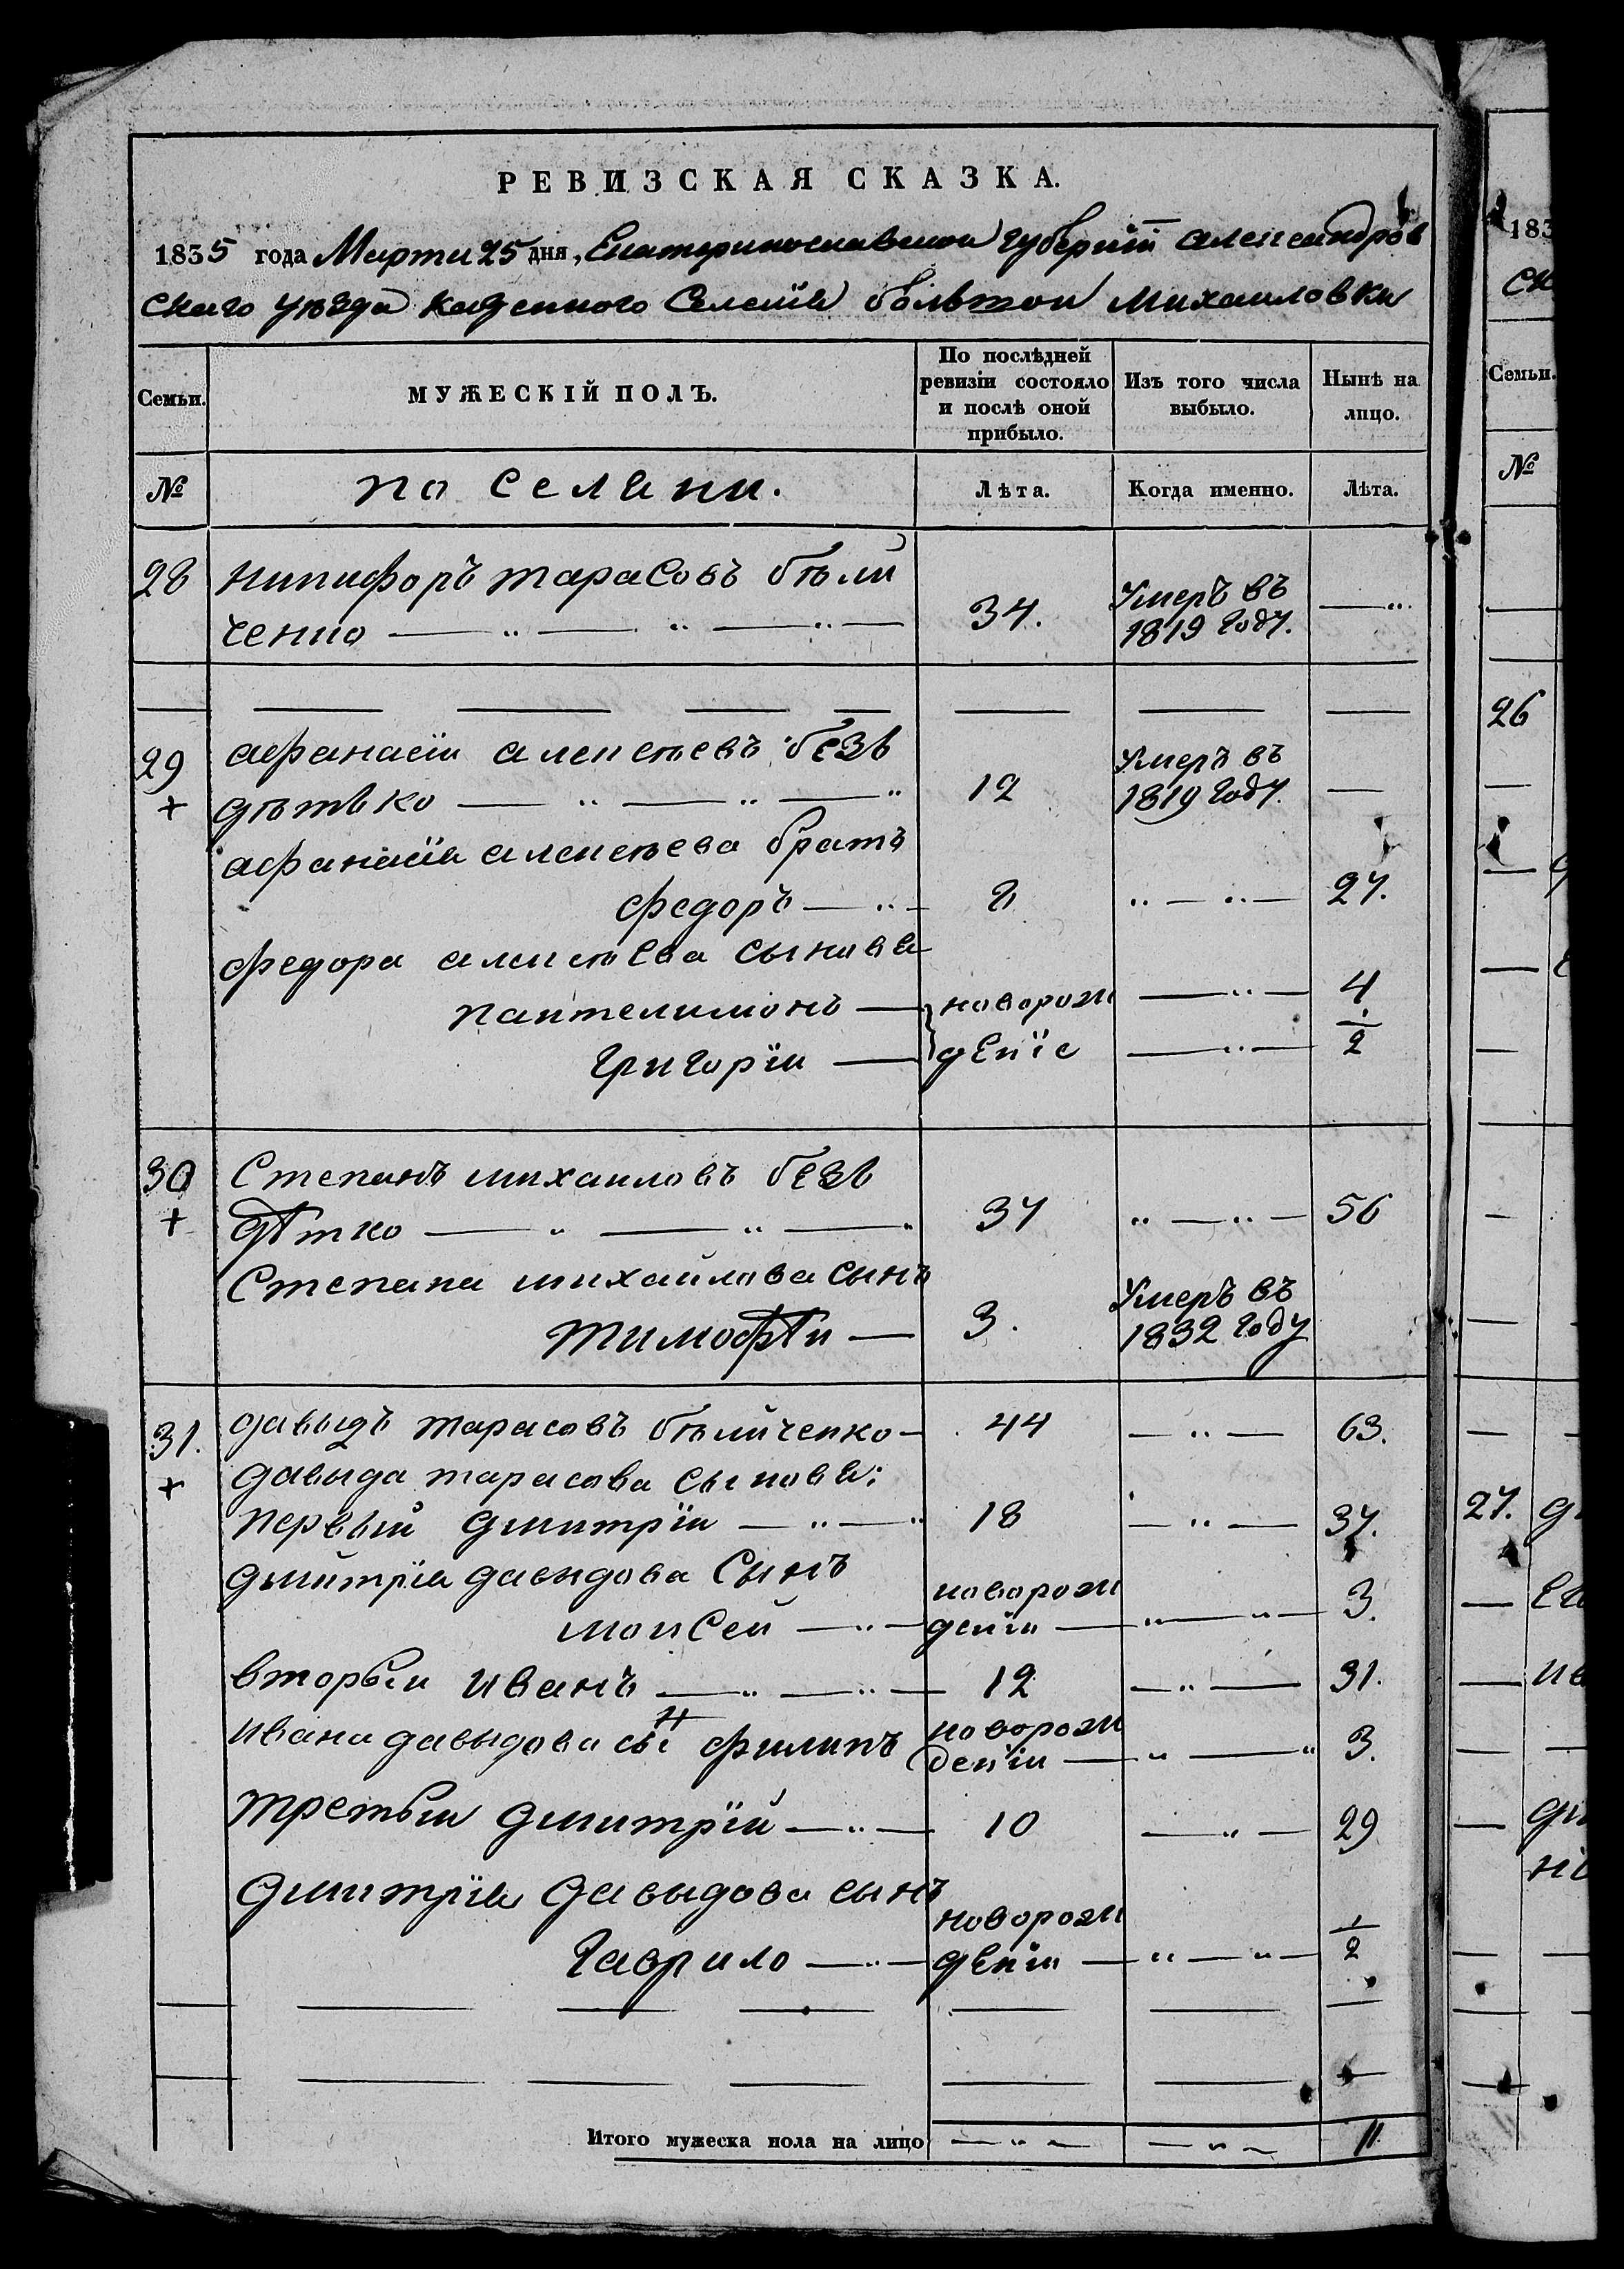 РЕВИЗСКАЯ СКАЗКА.
1835 года Марта 25 дня, Екатеринославской губернїи александров
скаго уѣзда казенного Селенїя большой михаиловки
Семьи. МУЖЕСКІЙ ПОЛЪ. По послѣдней ревизіи состояло и послѣ оной прибыло. Изъ того числа выбыло. Нынѣ на лицо.
№ Лѣта. Когда именно. Лѣта.
28 никифоръ тарасовъ бѣли
ченко — 34. Умеръ въ 1819 году. —
29 афанасїи алексѣевъ безъ
+ дѣтько — 12 Умеръ въ 1819 году. —
афанасїя алексѣева братъ
федоръ — 8 — 27.
федора алексѣева сынове
пантелимонъ — новорож — 4
Григорїи — денїе — 1/2
30 Степанъ михаиловъ безъ
+ дѣтко — 37 — 56
Степана михайлова сынъ
тимофѣи — 3. Умеръ въ 1832 году
31. давыдъ тарасовъ бѣличенко — 44 — 63.
+ давыда тарасова сынове:
первый дмитрїи — 18 — 37.
дмитрїя давыдова Сынъ
моисей — новорож денїи — 3.
вторыи иванъ — 12 — 31.
ивана давыдова сын филипъ новорож денїи — 3.
третьи дмитрїй — 10 — 29
дмитрїя давыдова сынъ
Гаврило — новорож денїи — 1/2
Итого мужеска пола на лицо — — 11
183
ск
Семьи.
№
26
27.